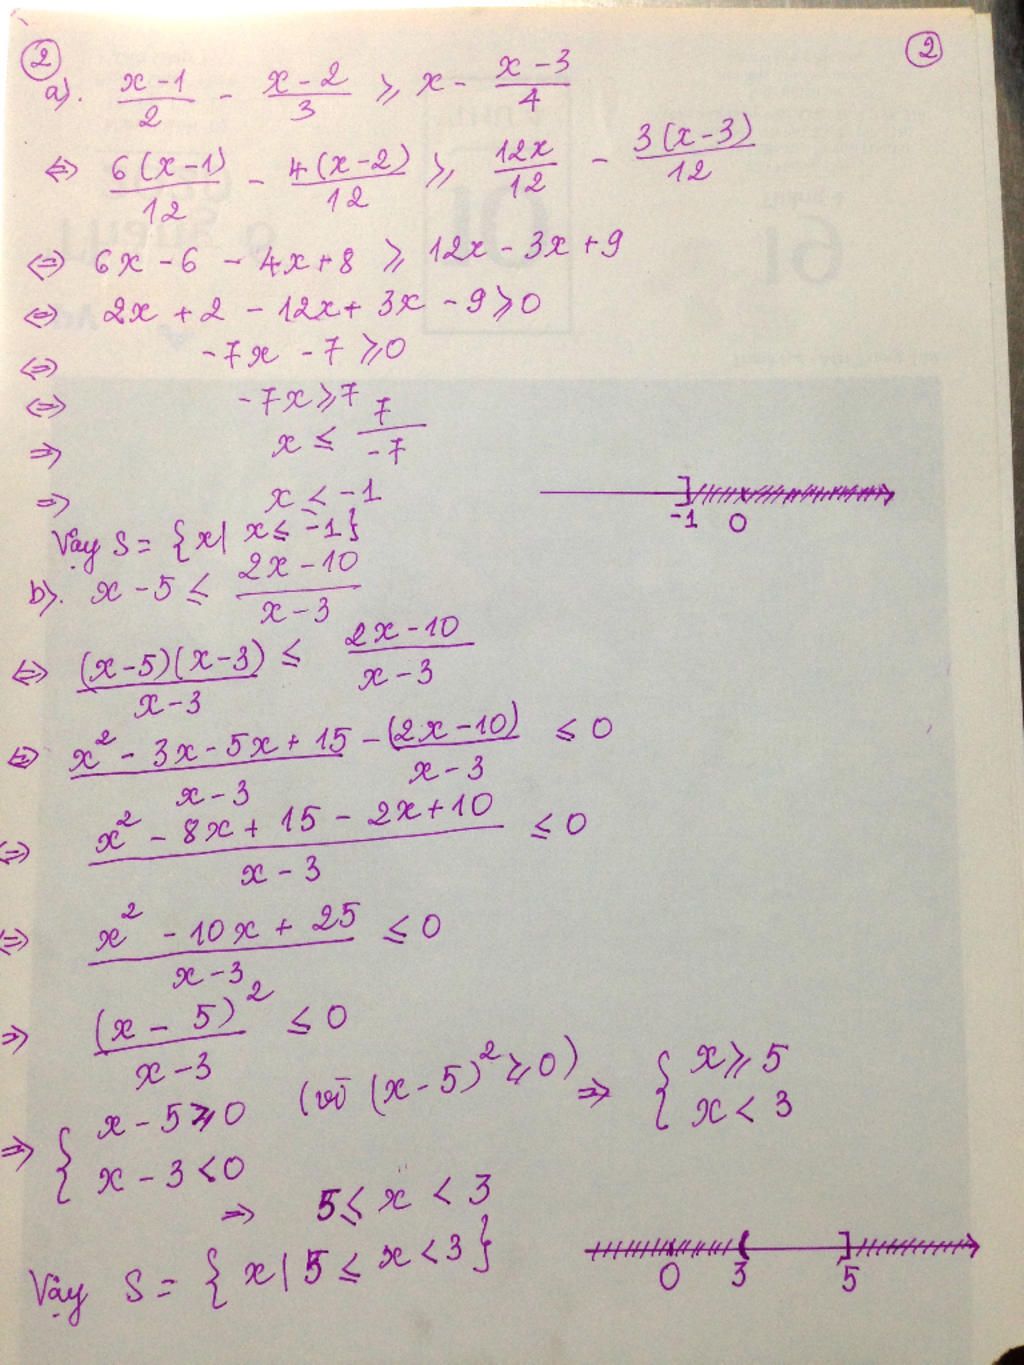 2 2
a). (x-1)/2 - (x-2)/3 ≥ x - (x-3)/4
⇔ 6(x-1)/12 - 4(x-2)/12 ≥ 12x/12 - 3(x-3)/12
⇔ 6x - 6 - 4x + 8 ≥ 12x - 3x + 9
⇔ 2x + 2 - 12x + 3x - 9 ≥ 0
⇔ -7x - 7 ≥ 0
⇔ -7x ≥ 7
⇒ x ≤ 7/-7
⇒ x ≤ -1
-1 0
Vậy S = {x| x ≤ -1}
b). x - 5 ≤ (2x-10)/(x-3)
⇔ (x-5)(x-3)/(x-3) ≤ (2x-10)/(x-3)
⇔ (x² - 3x - 5x + 15)/(x-3) - (2x-10)/(x-3) ≤ 0
⇔ (x² - 8x + 15 - 2x + 10)/(x-3) ≤ 0
⇔ (x² - 10x + 25)/(x-3) ≤ 0
⇒ (x-5)²/(x-3) ≤ 0
⇒ { x - 5 ≥ 0 (vì (x-5)² ≥ 0) ⇒ { x ≥ 5
x - 3 < 0 x < 3
⇒ 5 ≤ x < 3
Vậy S = {x| 5 ≤ x < 3}
0 3 5